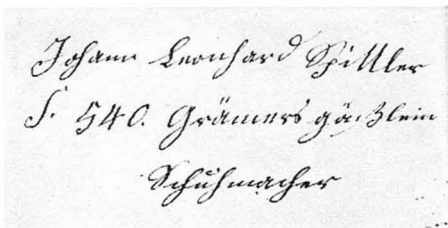 Johann Leonhard Spittler
S. 540. Grämersgäßlein
Schuhmacher